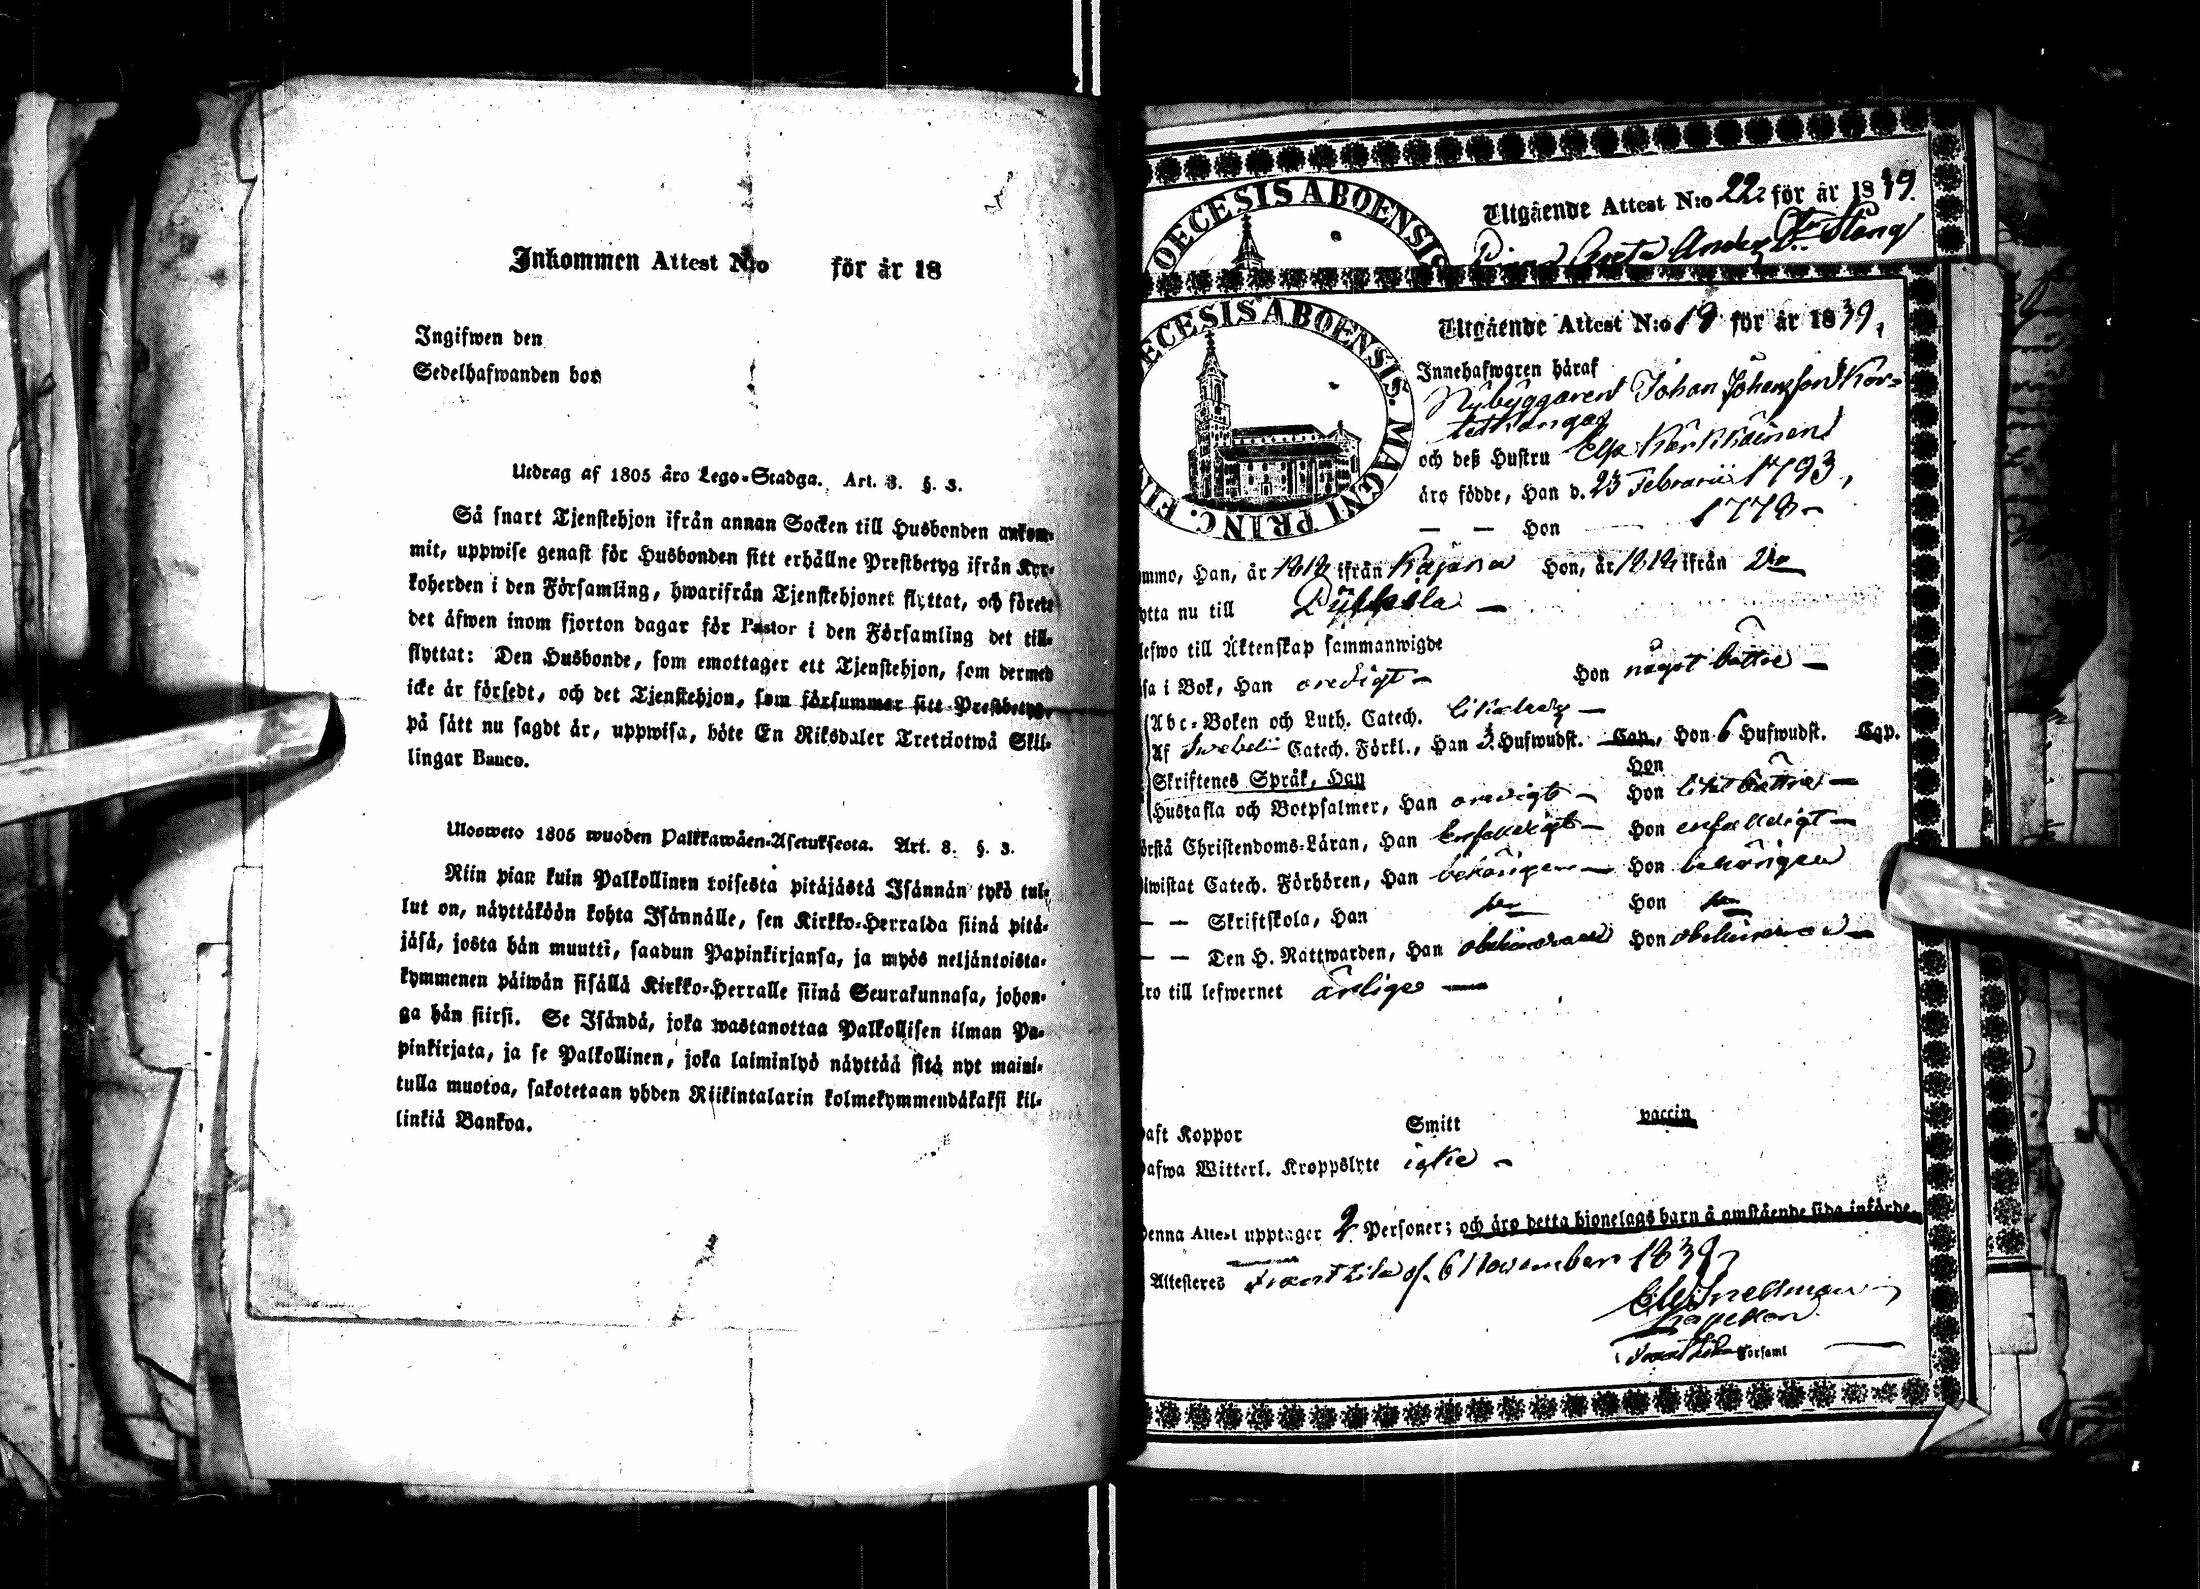 Inkommen Attest N:o för år 18
Ingifwen den
Sedelhafwanden bor
Utdrag af 1805 års Lego-Stadga. Art. 8. §. 3.
Så snart Tjenstehjon ifrån annan Socken till Husbonden ankom-
mit, uppwise genast för Husbonden sitt erhållne Prestbetyg ifrån Kyr-
koherden i den Församling, hwarifrån Tjenstehjonet flyttat, och förete
det äfwen inom fjorton dagar för Pastor i den Församling det till-
flyttat: Den Husbonde, som emottager ett Tjenstehjon, som dermed
icke är försedt, och det Tjenstehjon, som försummar sitt Prestbetyg,
på sätt nu sagdt är, uppwisa, böte En Riksdaler Trettiotwå Skil-
lingar Banco.
Ulosweto 1805 wuoden Palkkawäen-Asetuksesta. Art. 8. §. 3.
Niin pian kuin Palkollinen toisesta pitäjästä Isännän tykö tul-
lut on, näyttäköön kohta Isännälle, sen Kirkko-Herralda siinä pitä-
jäsä, josta hän muutti, saadun Papinkirjansa, ja myös neljäntoista-
kymmenen päiwän sisällä Kirkko-Herralle siinä Seurakunnasa, johon-
ga hän siirsi. Se Isändä, joka wastanottaa Palkollisen ilman Pa-
pinkirjata, ja se Palkollinen, joka laiminlyö näyttää sitä nyt maini-
tulla muotoa, sakotetaan yhden Riikintalarin kolmekymmendäkaksi kil-
linkiä Bankoa.
OECESIS ABOENSIS
Utgående Attest N:o 22 för år 1839.
Greta Anders
ECESIS ABOENSIS. MAGNI PRINC. FIN
Utgående Attest N:o 19 för år 1839,
Innehafwaren häraf
Nybyggaren Johan Johansson Kor-
tetkangas
och deß Hustru Elsa Kärkkäinen
äro födde, Han d. 23 Februarii 1793,
— — Hon 1778 —
mmo, Han, år 1818 ifrån Kajana Hon, år 1818 ifrån Do
ytta nu till
lefwo till Äktenskap sammanwigde
sa i Bok, Han oredigt — Hon något bättre —
Abc-Boken och Luth. Catech. likaledes —
Af Swebelii Catech. Förkl., Han 3. Hufwudst. Cap., Hon 6 Hufwudst. Cap.
Skriftenes Språk, Han Hon
Hustafla och Botpsalmer, Han oredigt — Hon litet bättre —
örstå Christendoms-Läran, Han enfaldigt — Hon enfaldigt —
iwistat Catech. Förhören, Han behörigen — Hon behörigen
— — Skriftskola, Han Hon
— — Den H. Nattwarden, Han obehindrad Hon obehindrad —
ro till lefwernet ärlige —
aft Koppor Smitt vaccin
afwa Witterl. Kroppslyte icke —
enna Attest upptager 2 Personer; och äro detta hjonelags barn å omstående sida införde.
Attesteres Frantsila d. 6 November 1839,
Snellman
Kapellan
Frantsila Församl